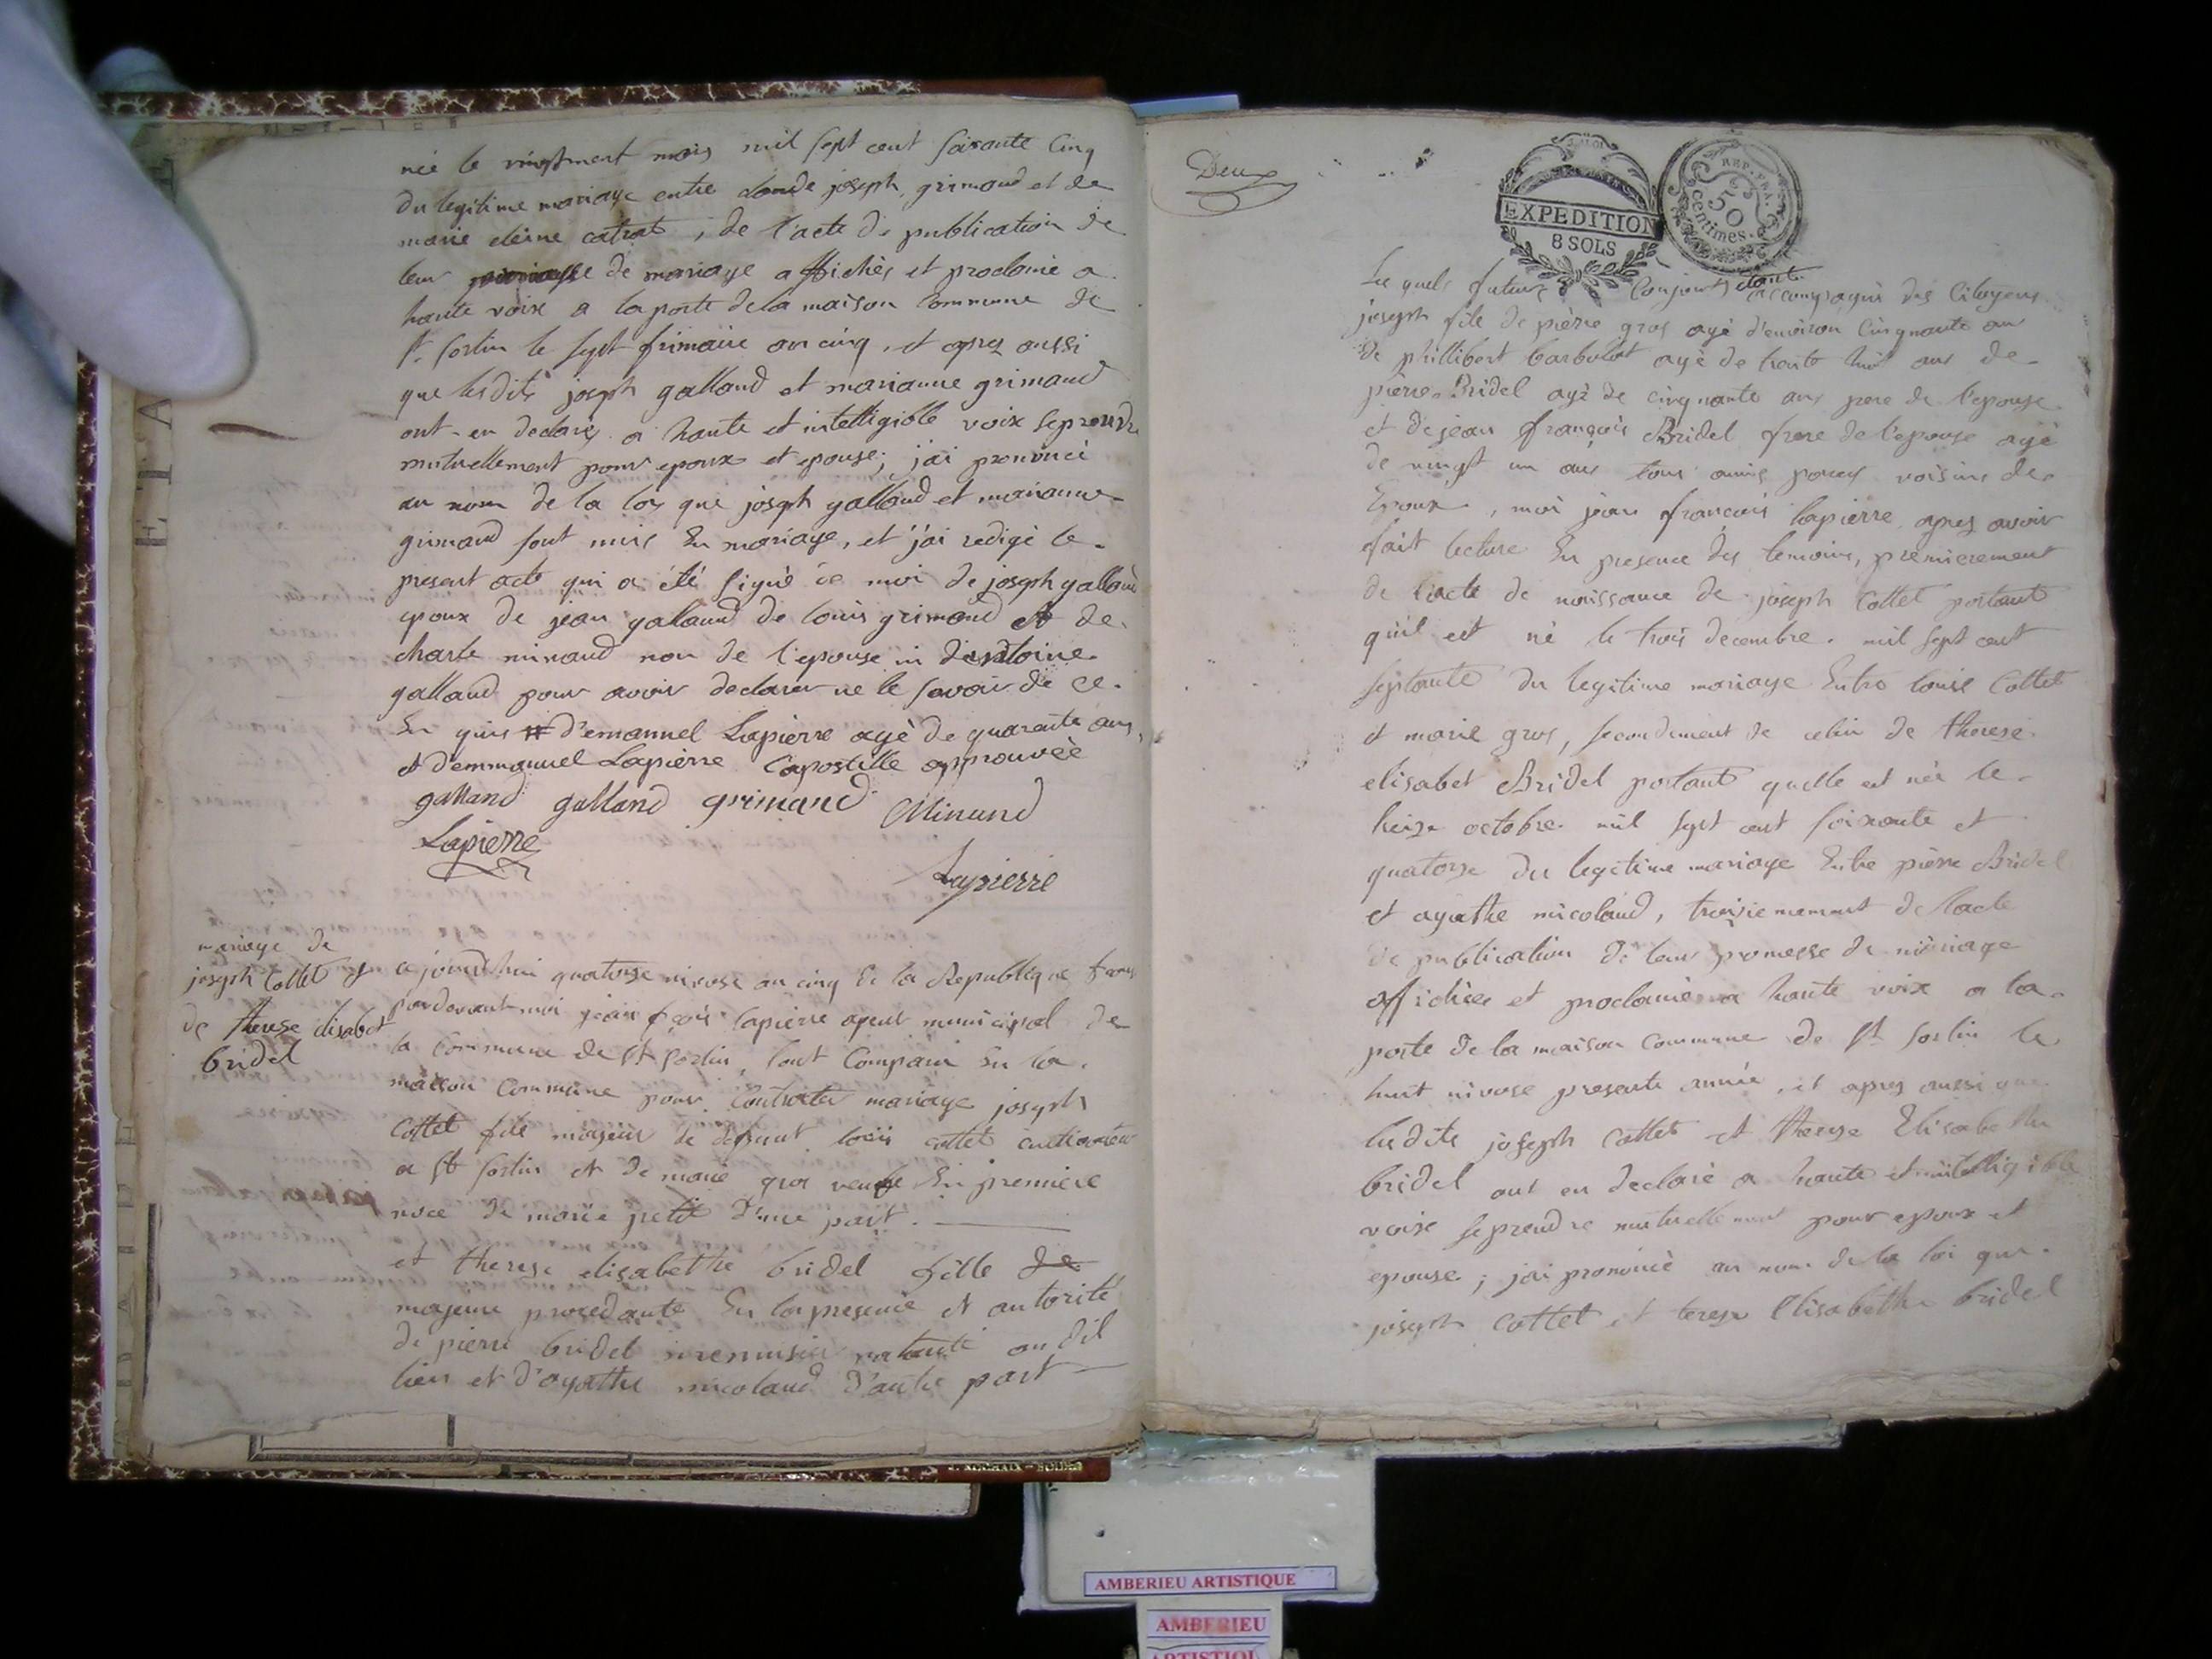 née le vingt mars mil sept cent soixante Cinq
du legitime mariage entre claude joseph grimaud et de
marie catrat, de l'acte de publication de
leur de mariage affichés et proclamé a
haute voix a la porte de la maison Commune de
St. Sorlin le sept frimaire an cinq, et apres aussi
que lesdits joseph galland et marianne grimaud
ont en declarés a haute et intelligible voix se prendre
mutuellement pour epoux et epouse, j'ai prononcé
au nom de la loy que joseph galland et marianne
grimaud sont unis En mariage, et j'ai redigé le
present acte qui a été signé de moi de joseph galland
epoux de jean galland de louis grimaud et de
charle minaud non de l'epouse ni d'antoine
galland pour avoir declarer ne le savoir de ce
En quis # d'emannuel Lapierre agé de quarante ans,
et d'emmanuel Lapierre Lapostille approuvée
galland galland grimaud Minaud
Lapierre
Lapierre
mariage de
joseph Cottet et
de therese elisabet
bridel
ce jourd'hui quatorse nivose an cinq de la Republique franc
pardevant moi jean fçois lapierre agent municipal de
la Commune de St Sorlin, sont Comparu En la
maison Commune pour Contracter mariage joseph
Cottet fils majeur de defunt louis cottet cultivateur
a St Sorlin et de marie gros veuf En premiere
noce de marie petit d'une part.
et therese elisabethe bridel fille de
majeure procedante En la presence et autorité
de pierre bridel menuisier au dit
lieu et d'agathe micolaud d'autre part
Deux
EXPEDITION
8 SOLS
REP. FRA.
50
centimes.
Lesquels futurs Conjoints étant accompagnés des Citoyens
joseph fils de pierre gros agé d'environ Cinquante an
de phillibert barbolat agé de trente huit ans de
pierre Bridel agé de cinquante ans pere de l'epouse
et de jean françois Bridel frere de l'epouse agé
de vingt un ans tous amis voisins des
Epoux, moi jean françois lapierre apres avoir
fait lecture En presence des temoins, premierement
de l'acte de naissance de joseph Cottet portant
qu'il est né le trois decembre mil sept cent
septante du legitime mariage Entre louis Cottet
et marie gros, secondement de celui de therese
elisabet Bridel portant quelle est née le
octobre mil sept cent soixante et
quatorse du legitime mariage Entre pierre Bridel
et agathe micolaud, troisiemement de lacte
de publication de leur promesse de mariage
affichée et proclamée a haute voix a la
porte de la maison Commune de St Sorlin le
huit nivose presente année, et apres aussi que
lesdits joseph Cottet et therese Elisabethe
bridel ont en declaré a haute et intelligible
voix se prendre mutuellement pour epoux et
epouse; j'ai prononcé au nom de la loi que
joseph Cottet et terese Elisabethe bridel
AMBERIEU ARTISTIQUE
AMBERIEU
ARTISTIQU